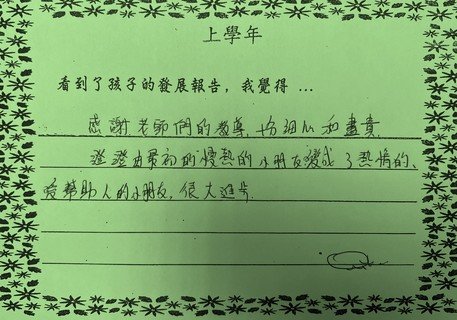 上學年
看到了孩子的發展報告，我覺得 ...
感謝老師們的教導，均細心和盡責
澄澄由最初的慢熱的小朋友變成了熱情的、
愛幫助人的小朋友，很大進步.